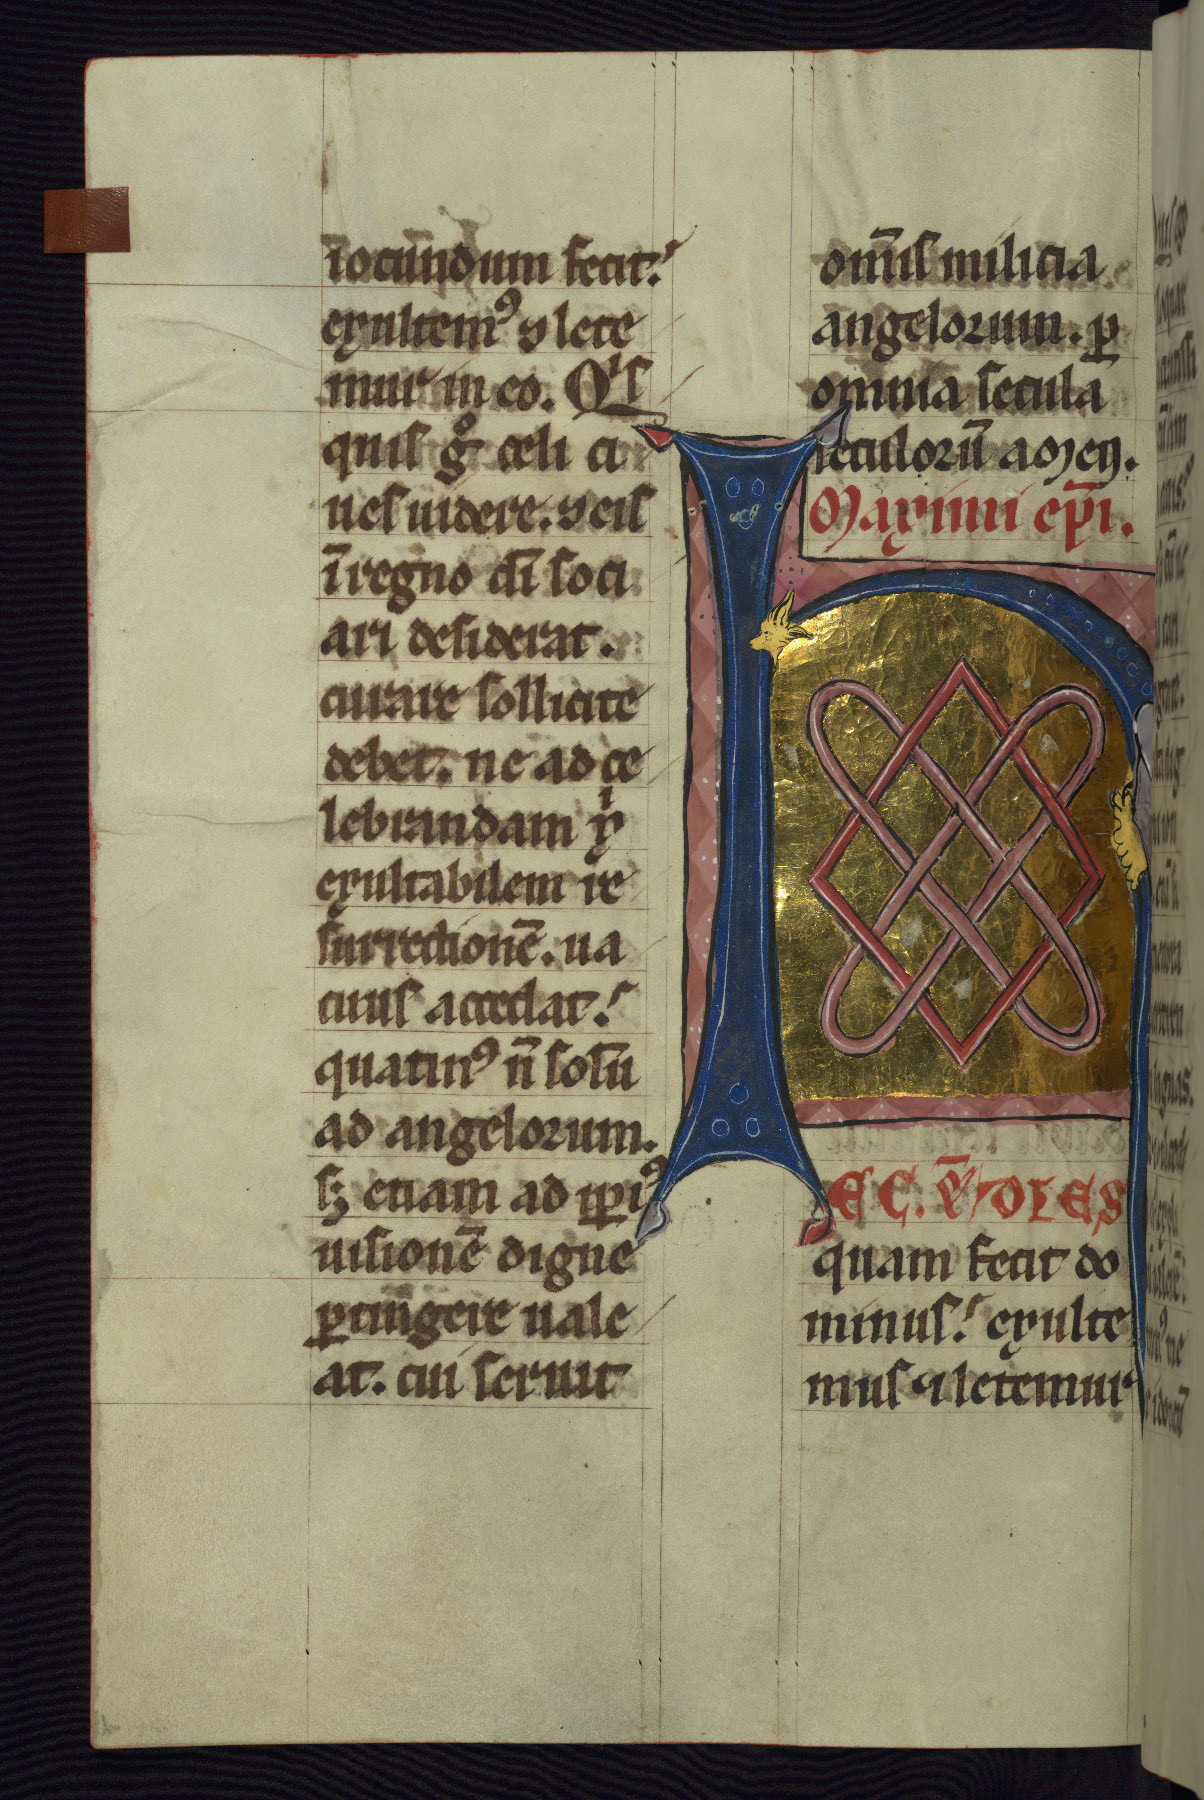 iocūndum fecit.
exultemꝰ ⁊ lete
mur in eo. Qiſ
quiſ gͦ celi ci
ueſ uidere. ⁊ eiſ
ī regno dī ſoci
ari deſiderat.
curare ſollicite
debet. ne ad ce
lebrandam ⁊
exultabilem re
ſurrectionē. ua
cuuſ accedat.
quatinꝰ n̄ ſolū
ad angelorum.
ſꝫ etiam ad ipiꝰ
uiſionē digne
ꝑtingere uale
at. cui ſeruit
om̄iſ milicia
angelorum. ꝑ
omnia ſecula
ſeculorū amen.
Maximi ep̄i.
HEC. EST DIES
quam fecit do
minuſ. exulte
muſ ⁊ letemur